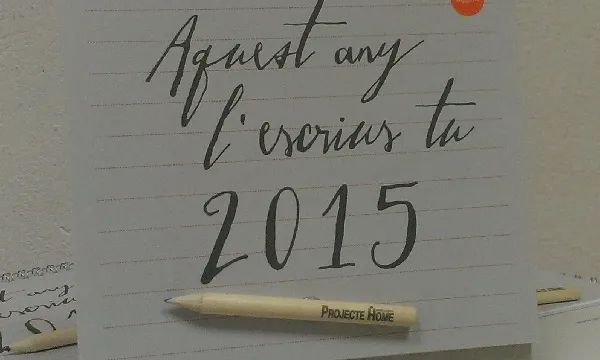 Aquest any
l'escrius tu
2015
PROJECTE HOME